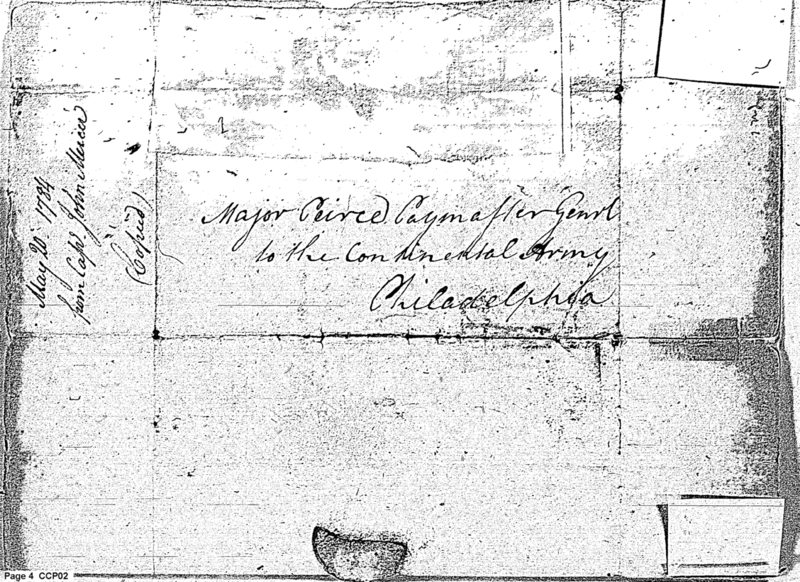 May 20 1784
from Capt John Mercer
(Copied)
Major Peirce Paymaster Genrl
to the Continental Army
Philadelphia
Page 4 CCP02